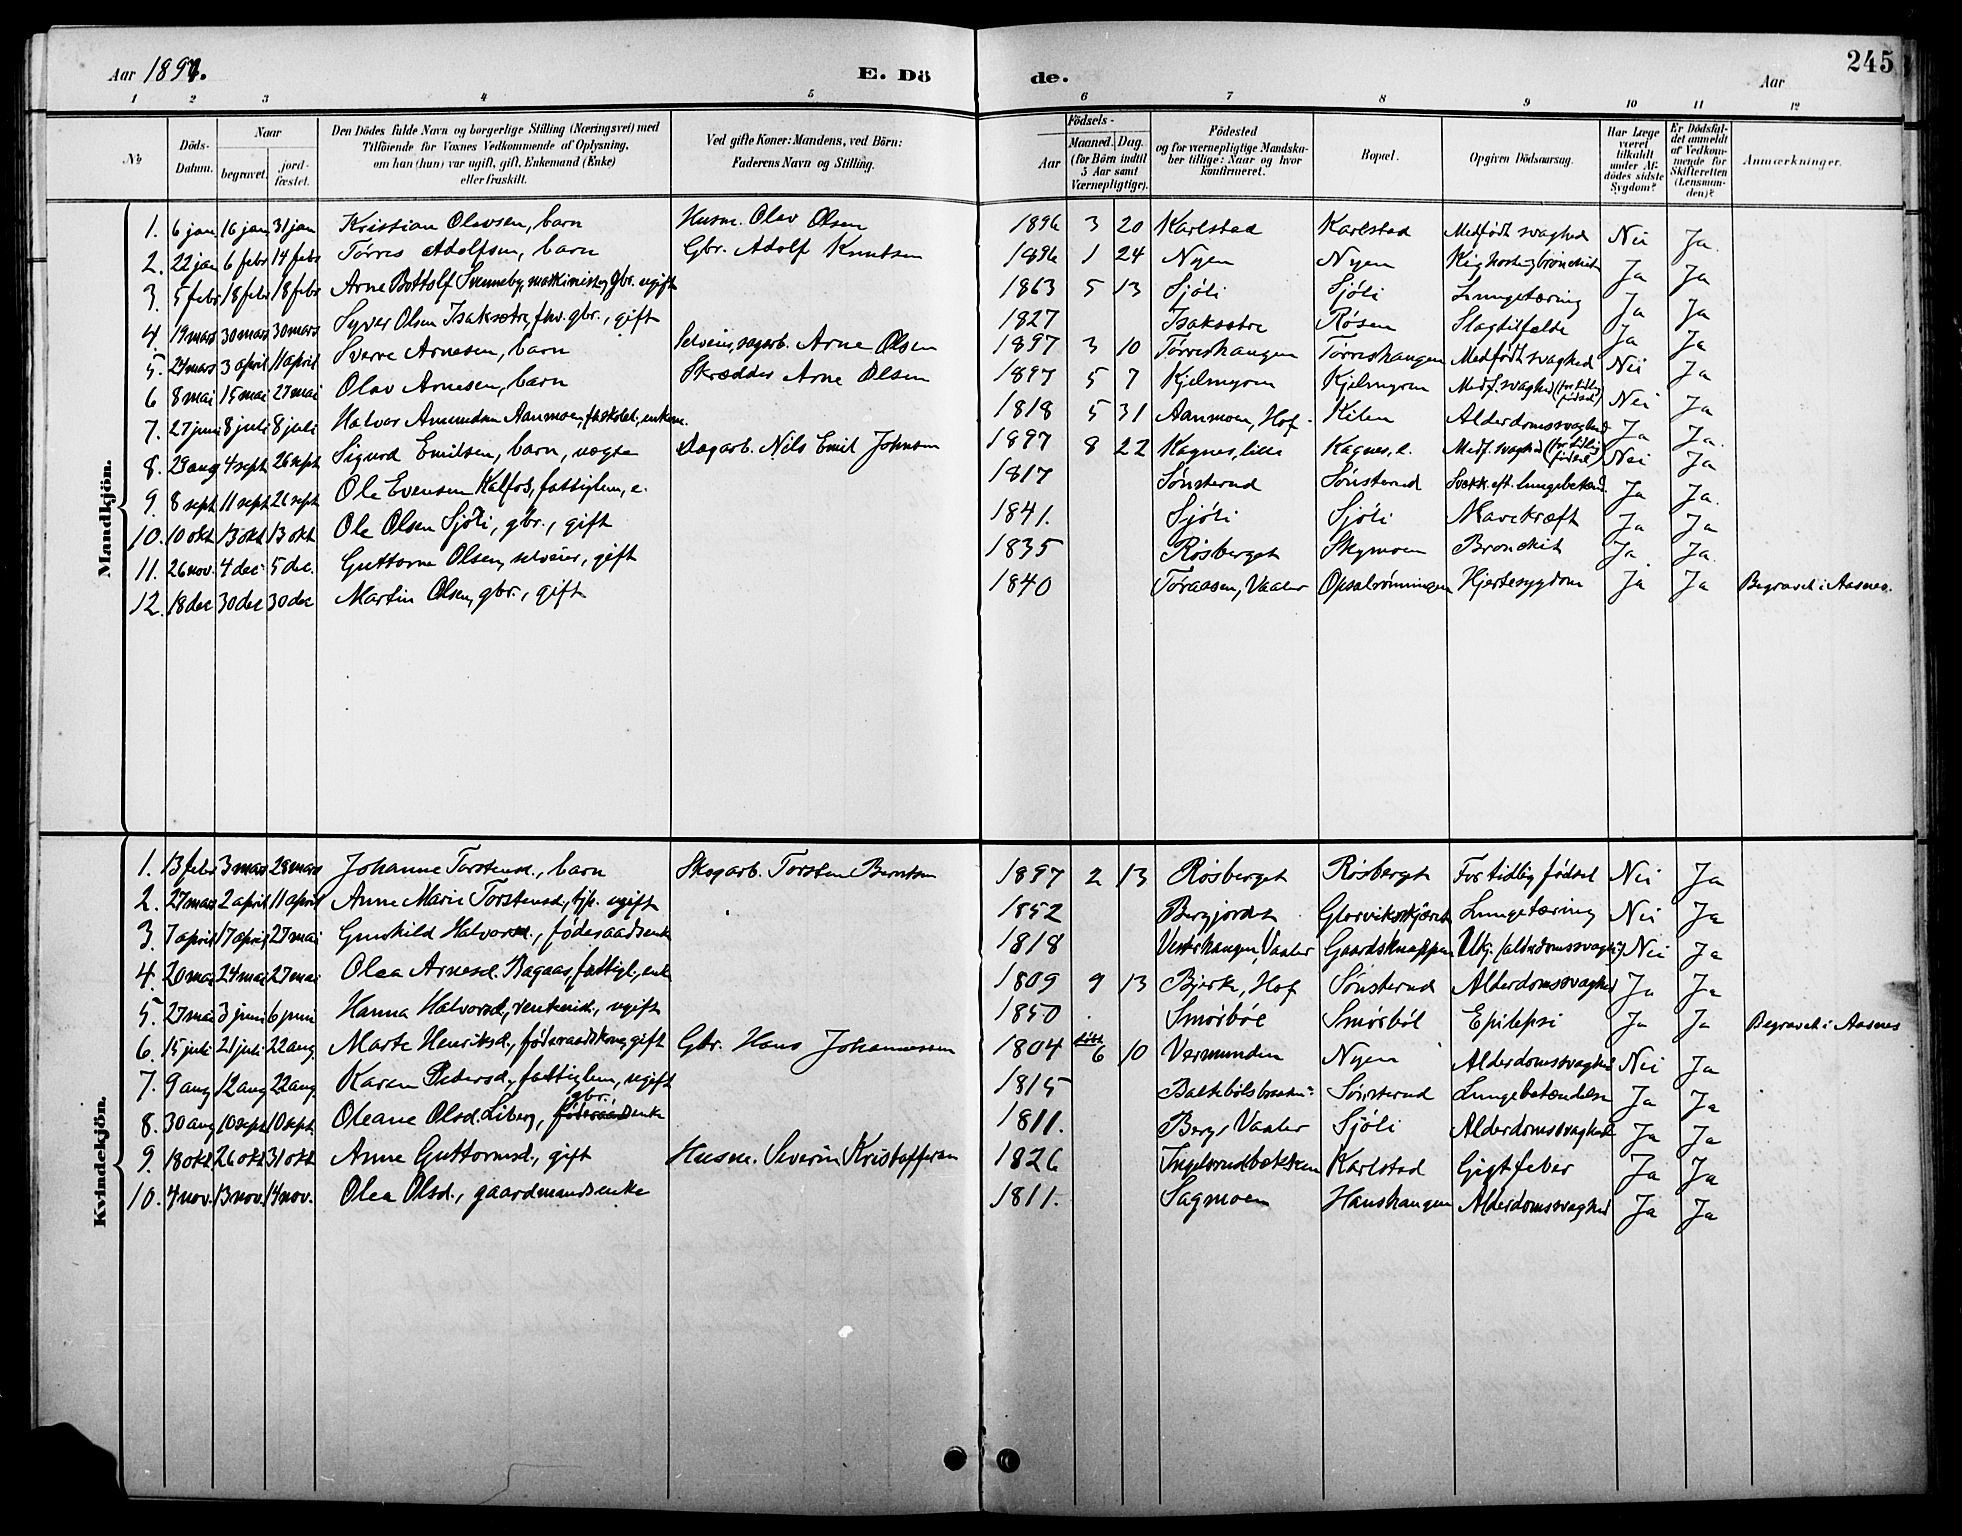 Aar 1897. E. Dö de. Aar 245
1 2 3 4 5 6 7 8 9 10 11 12
No
Döds-Datum.
Naar
begravet.
jord-fæstet.
Den Dödes fulde Navn og borgerlige Stilling (Næringsvei) med
Tilföiende for Voxnes Vedkommende af Oplysning,
om han (hun) var ugift, gift, Enkemand (Enke)
eller fraskilt.
Ved gifte Koner: Mandens, ved Börn:
Faderens Navn og Stilling.
Födsels-
Aar
Maaned. Dag.
(for Börn indtil
5 Aar samt
Værnepligtige).
Födested
og for værnepligtige Mandska-
ber tillige: Naar og hvor
konfirmeret.
Bopæl.
Opgiven Dödsaarsag.
Har Læge
været
tilkaldt
under Af-
dödes sidste
Sygdom?
Er Dödsfal-
det anmeldt
af Vedkom-
mende for
Skifteretten
(Lensman-
den)?
Anmærkninger.
Mandkjön.
1. 6 jan 16 jan 31 jan Kristian Olavsen, barn Husm. Olav Olsen 1896 3 20 Karlstad Karlstad Medfødt svaghed Nei Ja.
2. 22 jan 6 febr 14 febr Tørres Adolfsen, barn Gbr. Adolf Knutsen 1896 1 24 Nyen Nyen Kighoste, bronchit Ja Ja
3. 5 febr 18 febr 18 febr Arne Bottolf Svenneby, maskinist, Gbr. ugift 1863 5 13 Sjöli Sjöli Lungetæring Ja Ja
4. 19 mars 30 mars 30 mars Syver Olsen Isaksætre, fhv. gbr., gift 1827 Isaksætre Røsen Slagtilfælde Ja Ja
5. 24 mars 3 april 11 april Sverre Arnesen, barn Selveier, sagarb. Arne Olsen 1897 3 10 Tørreshaugen Tørreshaugen Medfødt svaghed Nei Ja
6 8 mai 15 mai 27 mai Olav Arnesen, barn Skrædder Arne Olsen 1897 5 7 Kjelmyren Kjelmyren Medf. svaghed (for tidlig födsel) Nei Ja
7. 27 juni 8 juli 8 juli Halvor Amundsen Aanmoen, enkem. 1818 5 31 Aanmoen, Hof Kilen Alderdomssvaghed Ja Ja.
8. 29 aug 4 sept 26 sept Sigurd Emilsen, barn, uægte Dagarb. Nils Emil Johnsen 1897 8 22 Kagnes, lille Kagnes, l. Medf. svaghed (for tidlig födsel) Nei Ja
9. 8 sept 11 sept 26 sept Ole Evensen Kalfos, fattiglem, e. 1817 Sønsterud Sønsterud Svækk. eft. lungebetænd. Ja Ja.
10. 10 okt 13 okt 13 okt Ole Olsen Sjöli, gbr., gift 1841. Sjöli Sjöli Mavekræft Ja Ja
11. 26 nov. 4 dec 5 dec. Guttorm Olsen, selveier, gift 1835 Røsberget Skymoen Bronchit Ja Ja.
12. 18 dec 30 dec 30 dec Martin Olsen, gbr., gift 1840 Toraasen, Vaaler Opsalrønningen Hjertesygdom Ja Ja Begravet i Aasnes.
Kvindekjön.
1. 13 febr 3 mars 28 mars Johanne Torstensd., barn Skogarb. Torsten Berntsen 1897 2 13 Røsberget Røsberget For tidlig födsel Nei Ja
2. 27 mars 2 april 11 april Anne Marie Torstensd., tjp. ugift 1852 Bergjordet Glorviksskjæret Lungetæring Nei Ja
3. 7 april 17 april 27 mai Gunhild Halvorsd., föderaadsenke 1818 Vesterhaugen, Vaaler Gaardsknappen (alderdomssvagh.) Nei Ja
4. 20 mai 24 mai 27 mai Olea Arnesd. Bagaas, fattigl., enke 1809 9 13 Bjerke, Hof Sønsterud Alderdomssvaghed Ja Ja
5. 27 mai 3 juni 6 juni Hanna Halvorsd., ugift 1850 Smörböl Smörböl Epilepsi Ja Ja Begravet i Aasnes
6. 15 juli 21 juli 22 aug. Marte Henriksd., föderaadskone, gift Gbr. Hans Johannessen 1804 döbt 6 10 Vermunden Nyen Alderdomssvaghed Nei Ja
7. 9 aug 12 aug 22 aug. Karen Pedersd., fattiglem, ugift 1815 Sønsterud Lungebetændelse Ja Ja
8. 30 aug 10 sept 10 sept. Oleane Olsd. Liberg, föderaadsenke gbr. 1811. Berg, Vaaler Sjöli Alderdomssvaghed Ja Ja
9. 18 okt 26 okt 31 okt Anne Guttormsd., gift Husm. Severin Kristoffersen 1826 Ingelsrudbækken Karlstad Gigtfeber Ja Ja
10. 4 nov. 13 nov. 14 nov. Olea Olsd., gaardmandsenke 1811. Sagmoen Hanshaugen Alderdomssvaghed Ja Ja